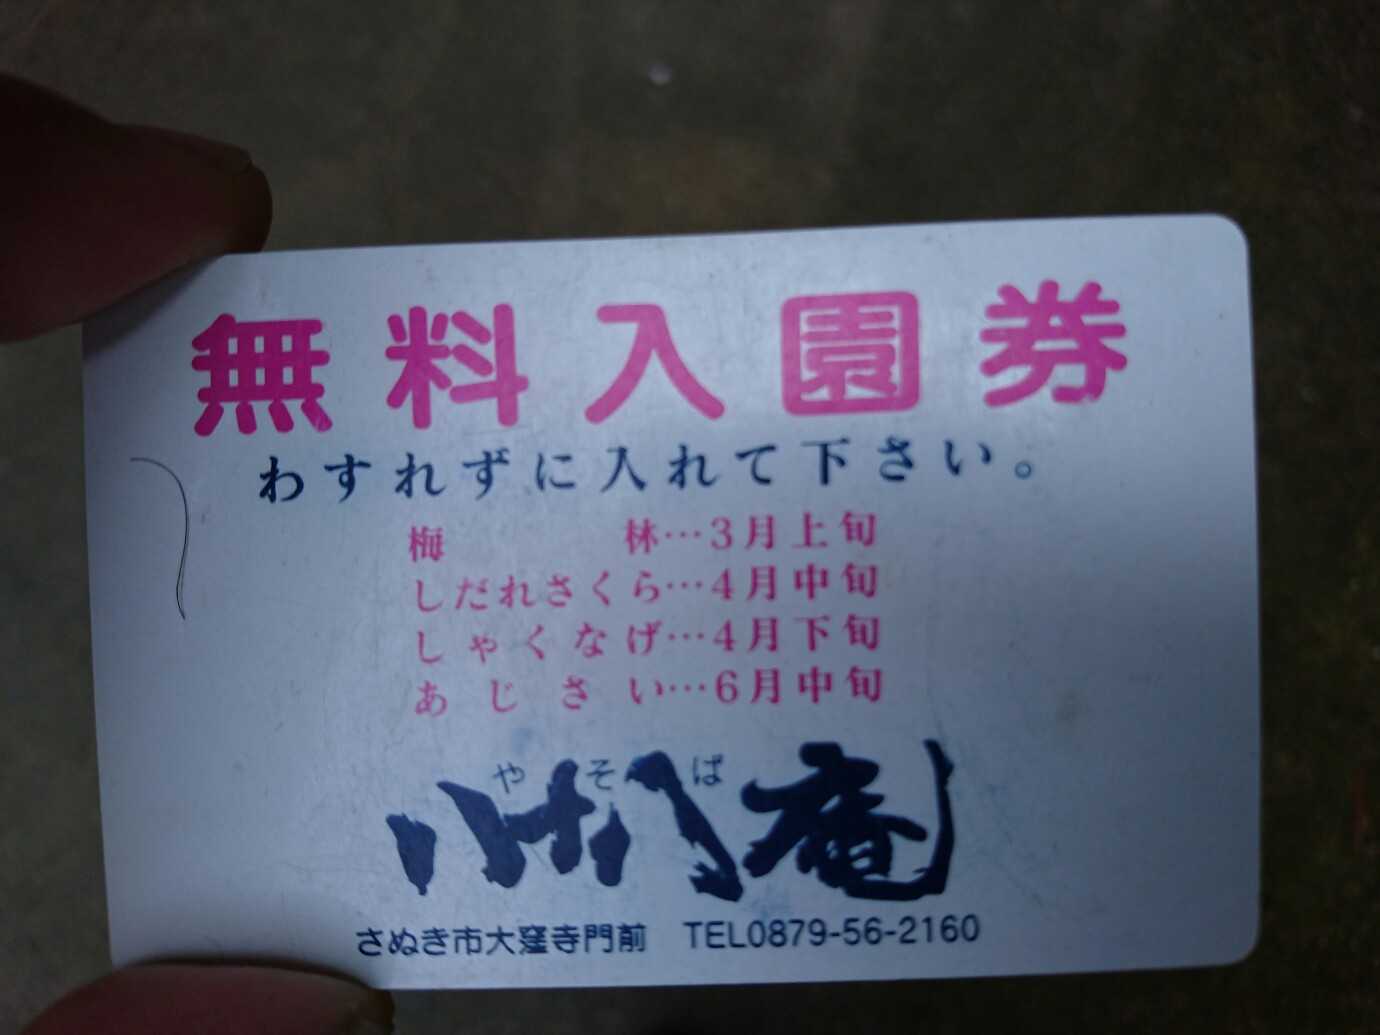 無料入園券
わすれずに入れて下さい。
梅林…3月上旬
しだれさくら…4月中旬
しゃくなげ…4月下旬
あじさい…6月中旬
やそば
八十八庵
さぬき市大窪寺門前 TEL0879-56-2160